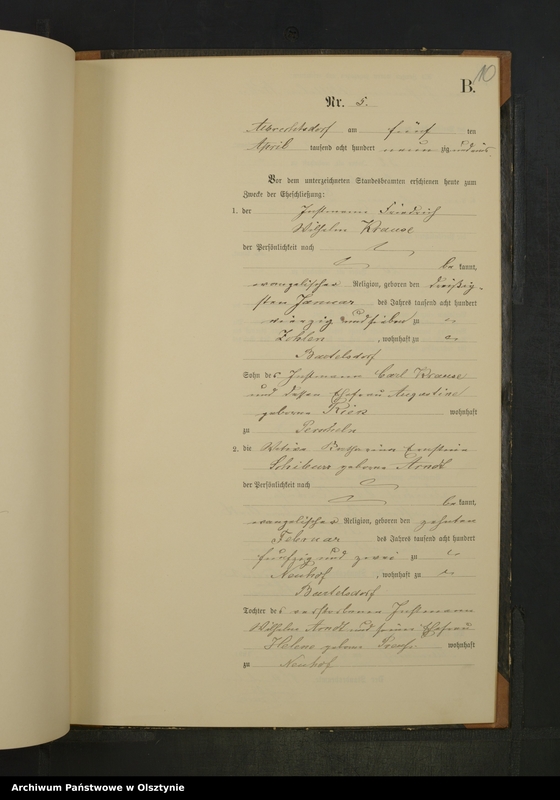 10
B.
Nr. 5.
Albrechtsdorf am fünf ten
April tausend acht hundert neun zig und
Vor dem unterzeichneten Standesbeamten erschienen heute zum
Zwecke der Eheschließung:
1. der Instmann Friedrich
Wilhelm Krause
der Persönlichkeit nach
be kannt,
evangelischer Religion, geboren den dreißig-
sten Januar des Jahres tausend acht hundert
vierzig und sieben zu
Zehlen, wohnhaft zu
Bartelsdorf
Sohn des Instmann Carl Krause
und dessen Ehefrau Augustine
geborne wohnhaft
zu
2. die Witwe Katharina Ernstine
geborne Arndt
der Persönlichkeit nach
be kannt,
evangelischer Religion, geboren den zehnten
Februar des Jahres tausend acht hundert
fünfzig und zwei zu
Neuhof, wohnhaft zu
Bartelsdorf
Tochter des verstorbenen Instmann
Wilhelm Arndt und seiner Ehefrau
Helene geborne wohnhaft
zu Neuhof
Archiwum Państwowe w Olsztynie